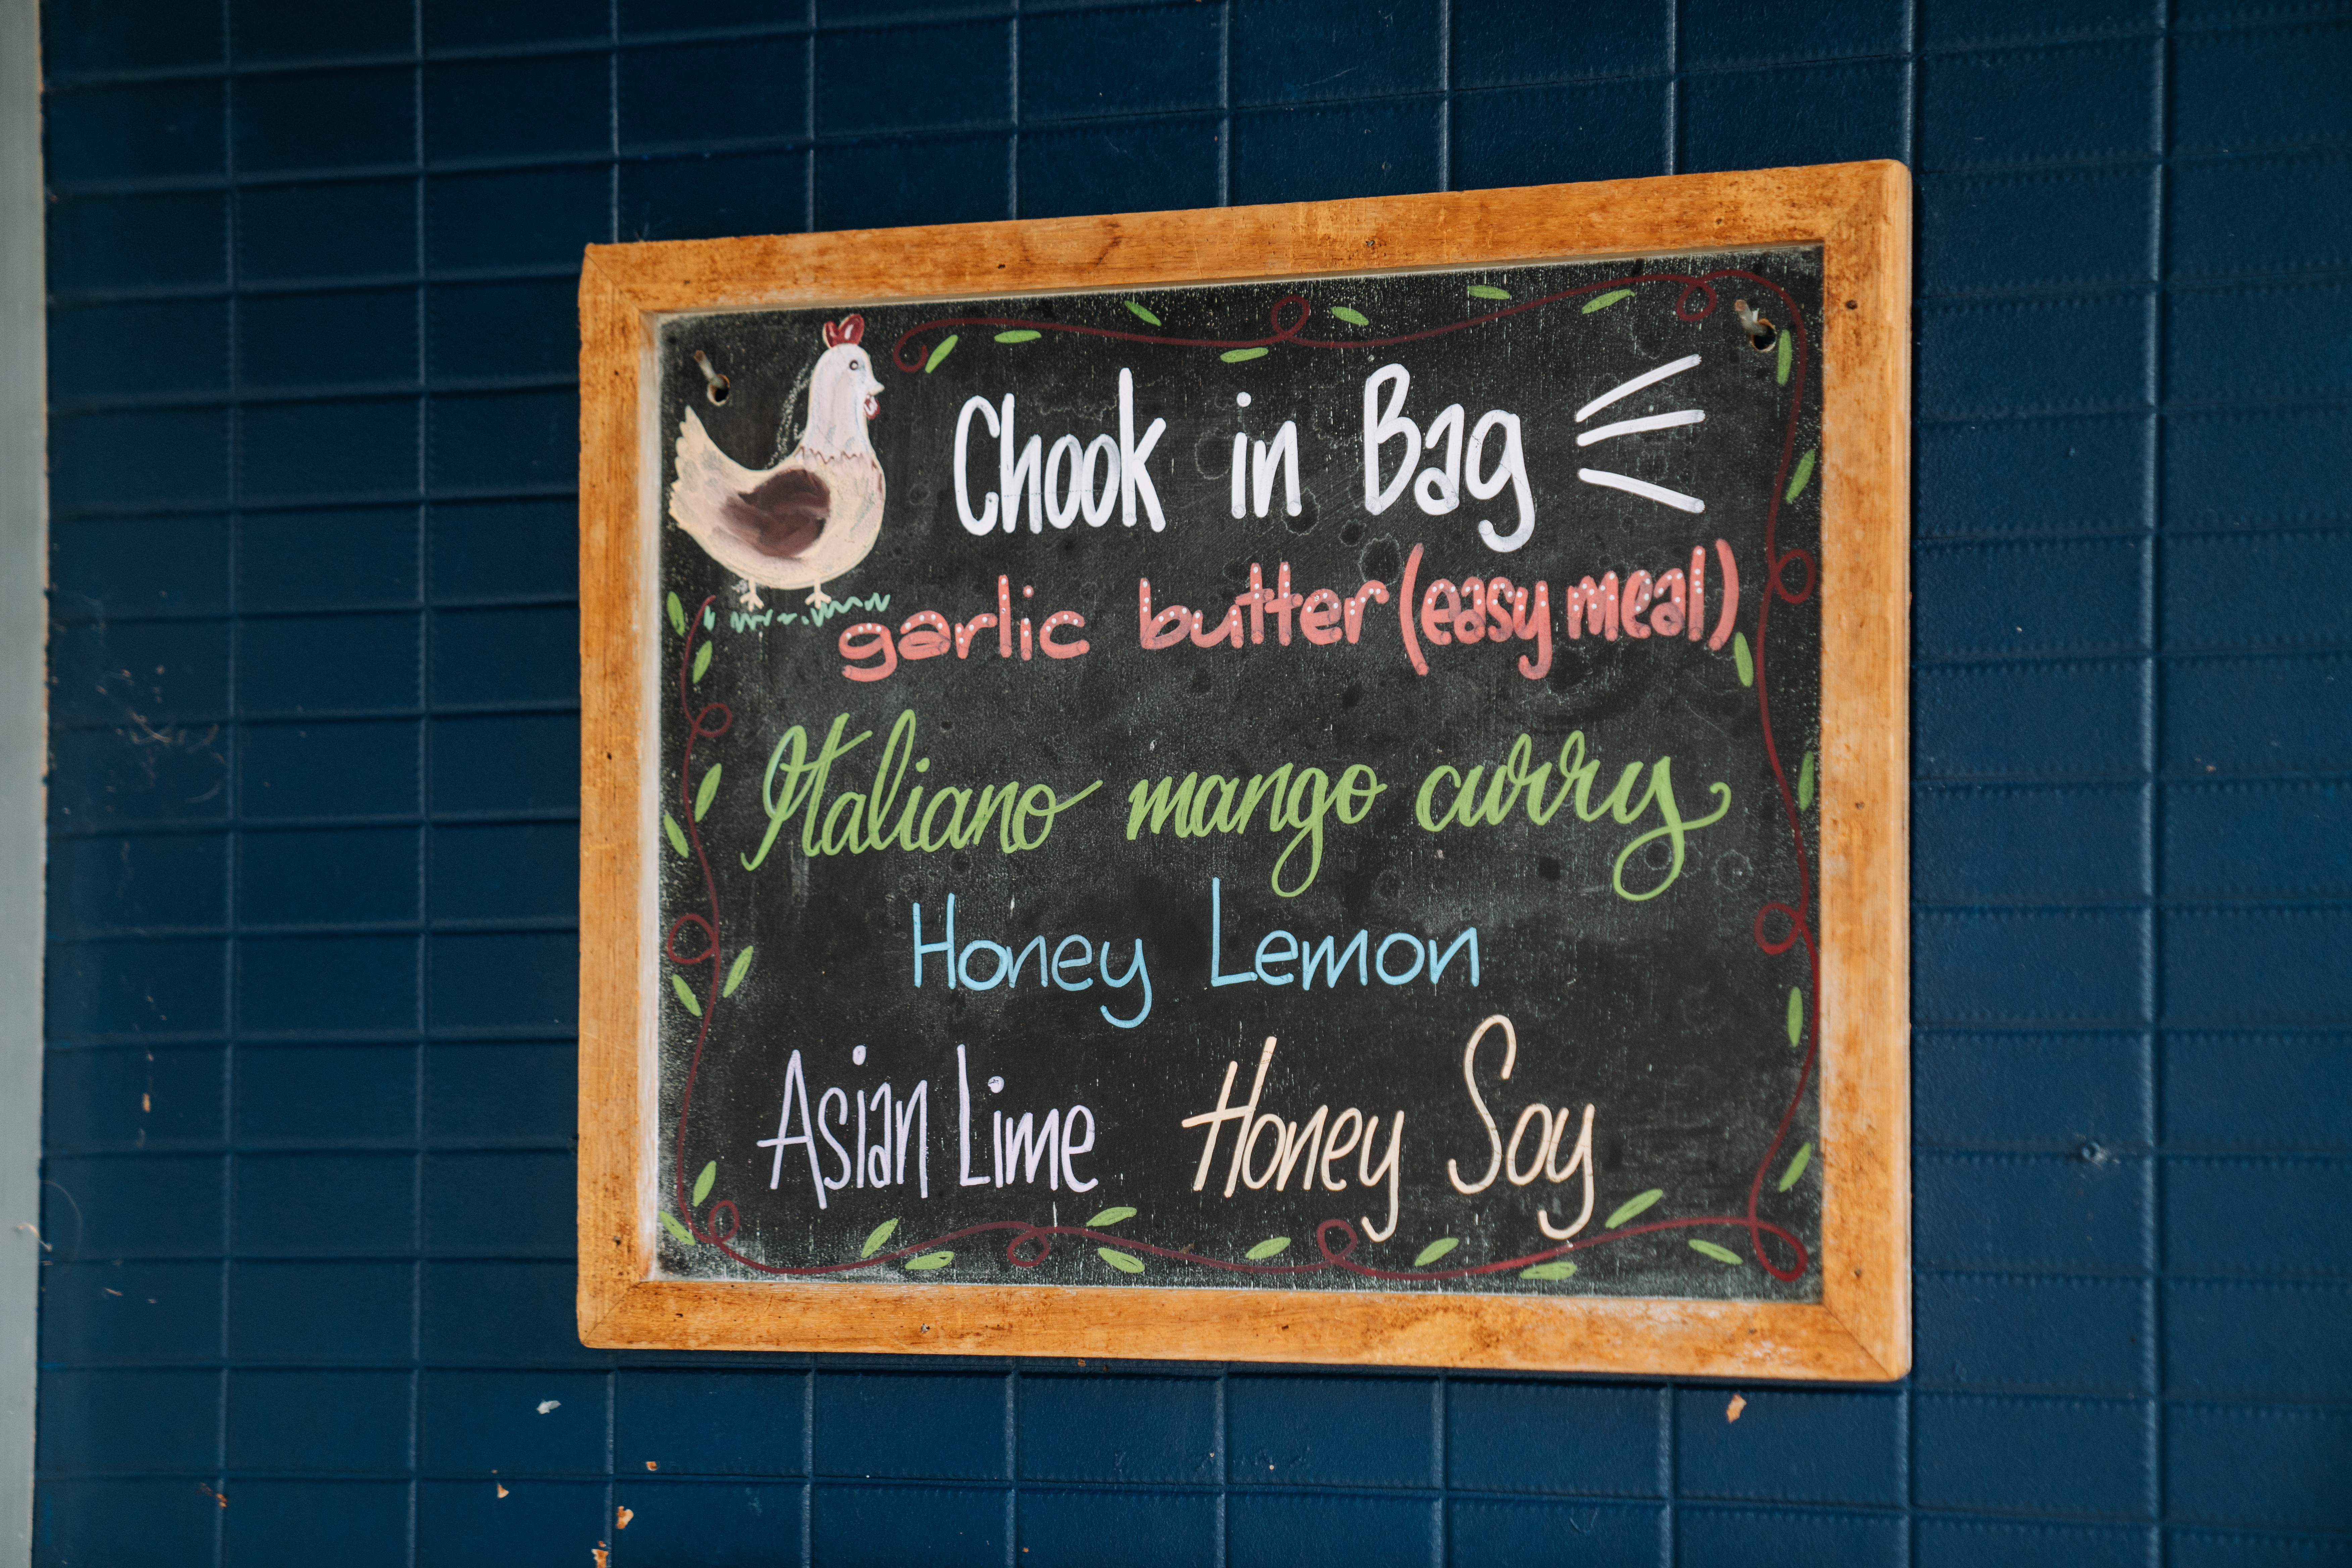 Chook in Bag
garlic butter (easy meal)
Italiano mango curry
Honey Lemon
Asian Lime Honey Soy